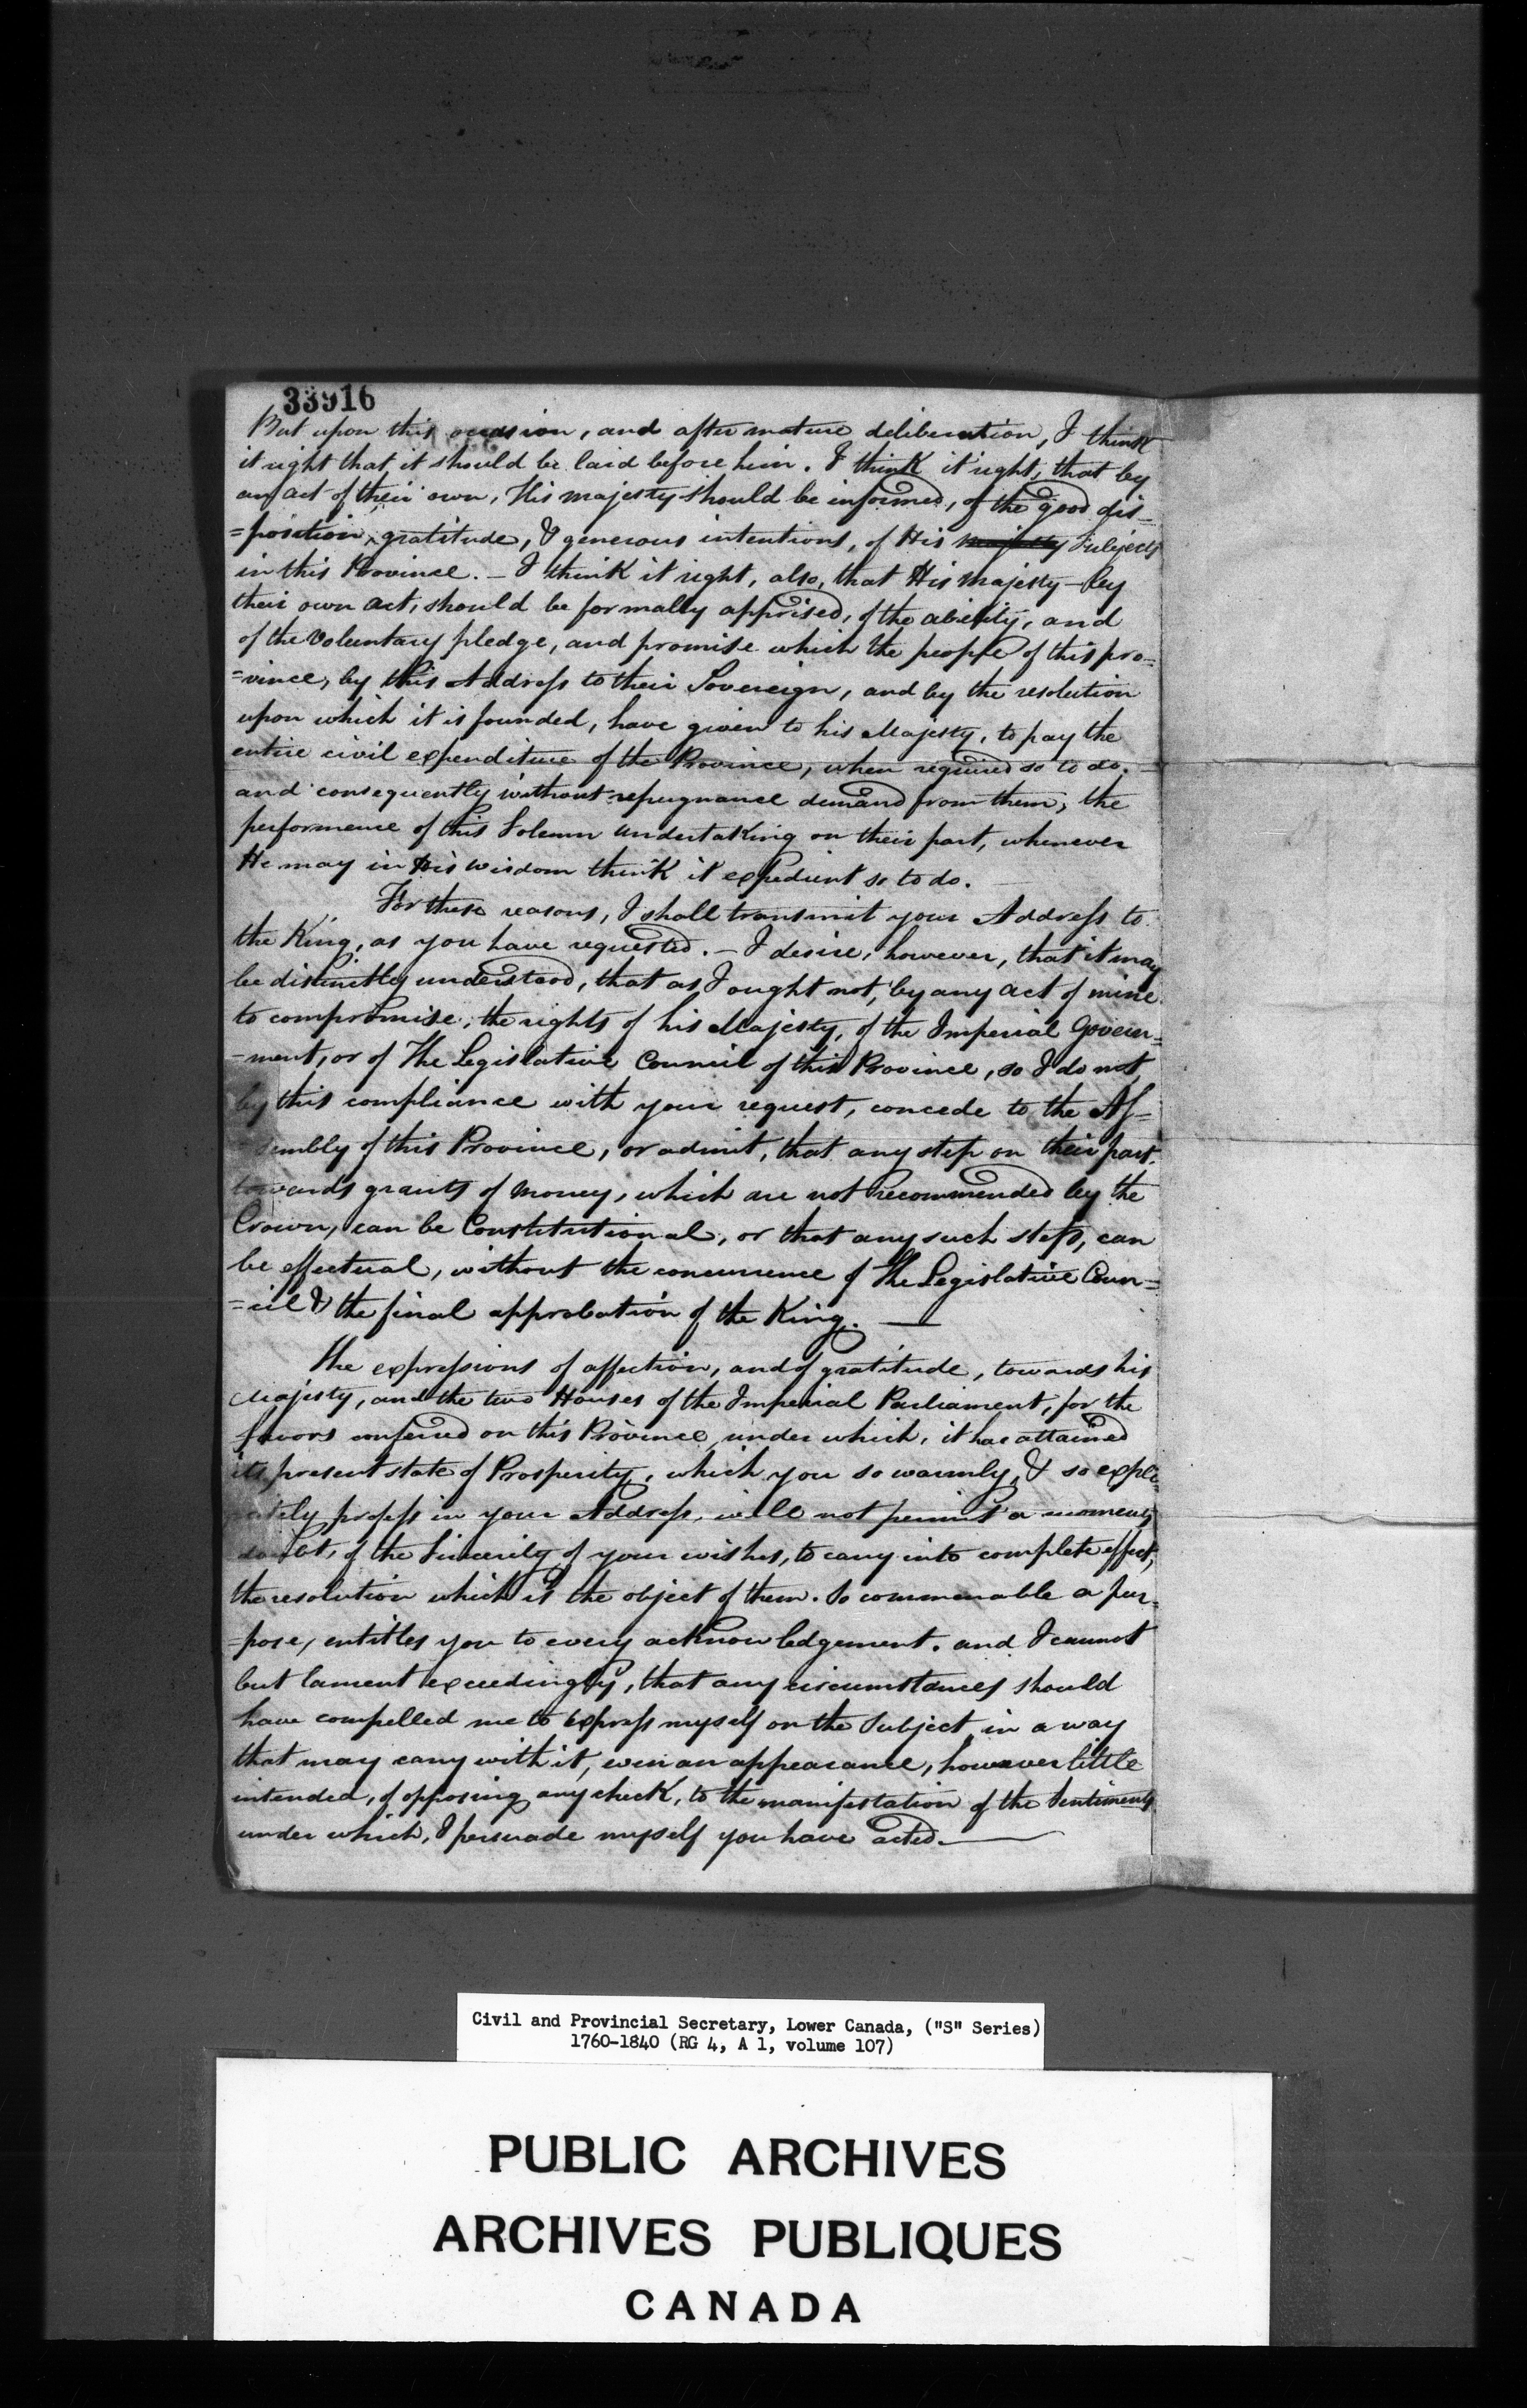 33916
But upon this occasion, and after mature deliberation, I think
it right that, it should be laid before him. I think it right, that by
an act of their own, His majesty should be informed, of the good dis-
=position, gratitude, & generous intentions, of His majesty Subjects
in this Province. - I think it right, also, that His Majesty - by
their own act, should be formally apprised, of the ability, and
of the Voluntary pledge, and promise which the people of this pro=
=vince, by this Address to their Sovereign, and by the resolution
upon which it is founded, have given to his Majesty, to pay the
entire civil expenditure of the Province, when required so to do.
and consequently without repugnance demand from them, the
performence of this Solemn undertaking on their part, whenever
He may in His wisdom think it expedient so to do.
For these reasons, I shall transmit your Address to
the King, as you have requested. - I desire, however, that it may
be distinctly understood, that as I ought not, by any act of mine
to compromise, the rights of his Majesty, of the Imperial Govern=
=ment, or of The Legislative Council of this Province, so I do not,
by this compliance with your request, concede to the As=
sembly of this Province, or admit, that any step on their part,
towards grants of Money, which are not recommended by the
Crown, can be Constitutional, or that any such steps, can
be effectual, without the concurrence of The Legislative Coun=
=cil & the final approbation of the King. —
The expressions of affection, and of gratitude, towards his
Majesty, and the two Houses of the Imperial Parliament, for the
favors conferred on this Province, under which, it has attained
its present state of Prosperity, which you so warmly, & so expli
citely profess in your Address, will not permit a moments
doubt, of the Sincerity of your wishes, to cary into complete effect,
the resolution which is the object of them. So commenable a pur=
=pose, entitles you to every acknowledgement. and I cannot
but lament exceedingly, that any circumstances should
have compelled me to express myself on the Subject, in a way
that may cany with it, even an appearance, however little
intended, of opposing any check, to the manifestation of the Sentiments
under which, I persuade myself you have acted. —
Civil and Provincial Secretary, Lower Canada, ("S" Series)
1760-1840 (RG 4, A 1, volume 107)
PUBLIC ARCHIVES
ARCHIVES PUBLIQUES
CANADA